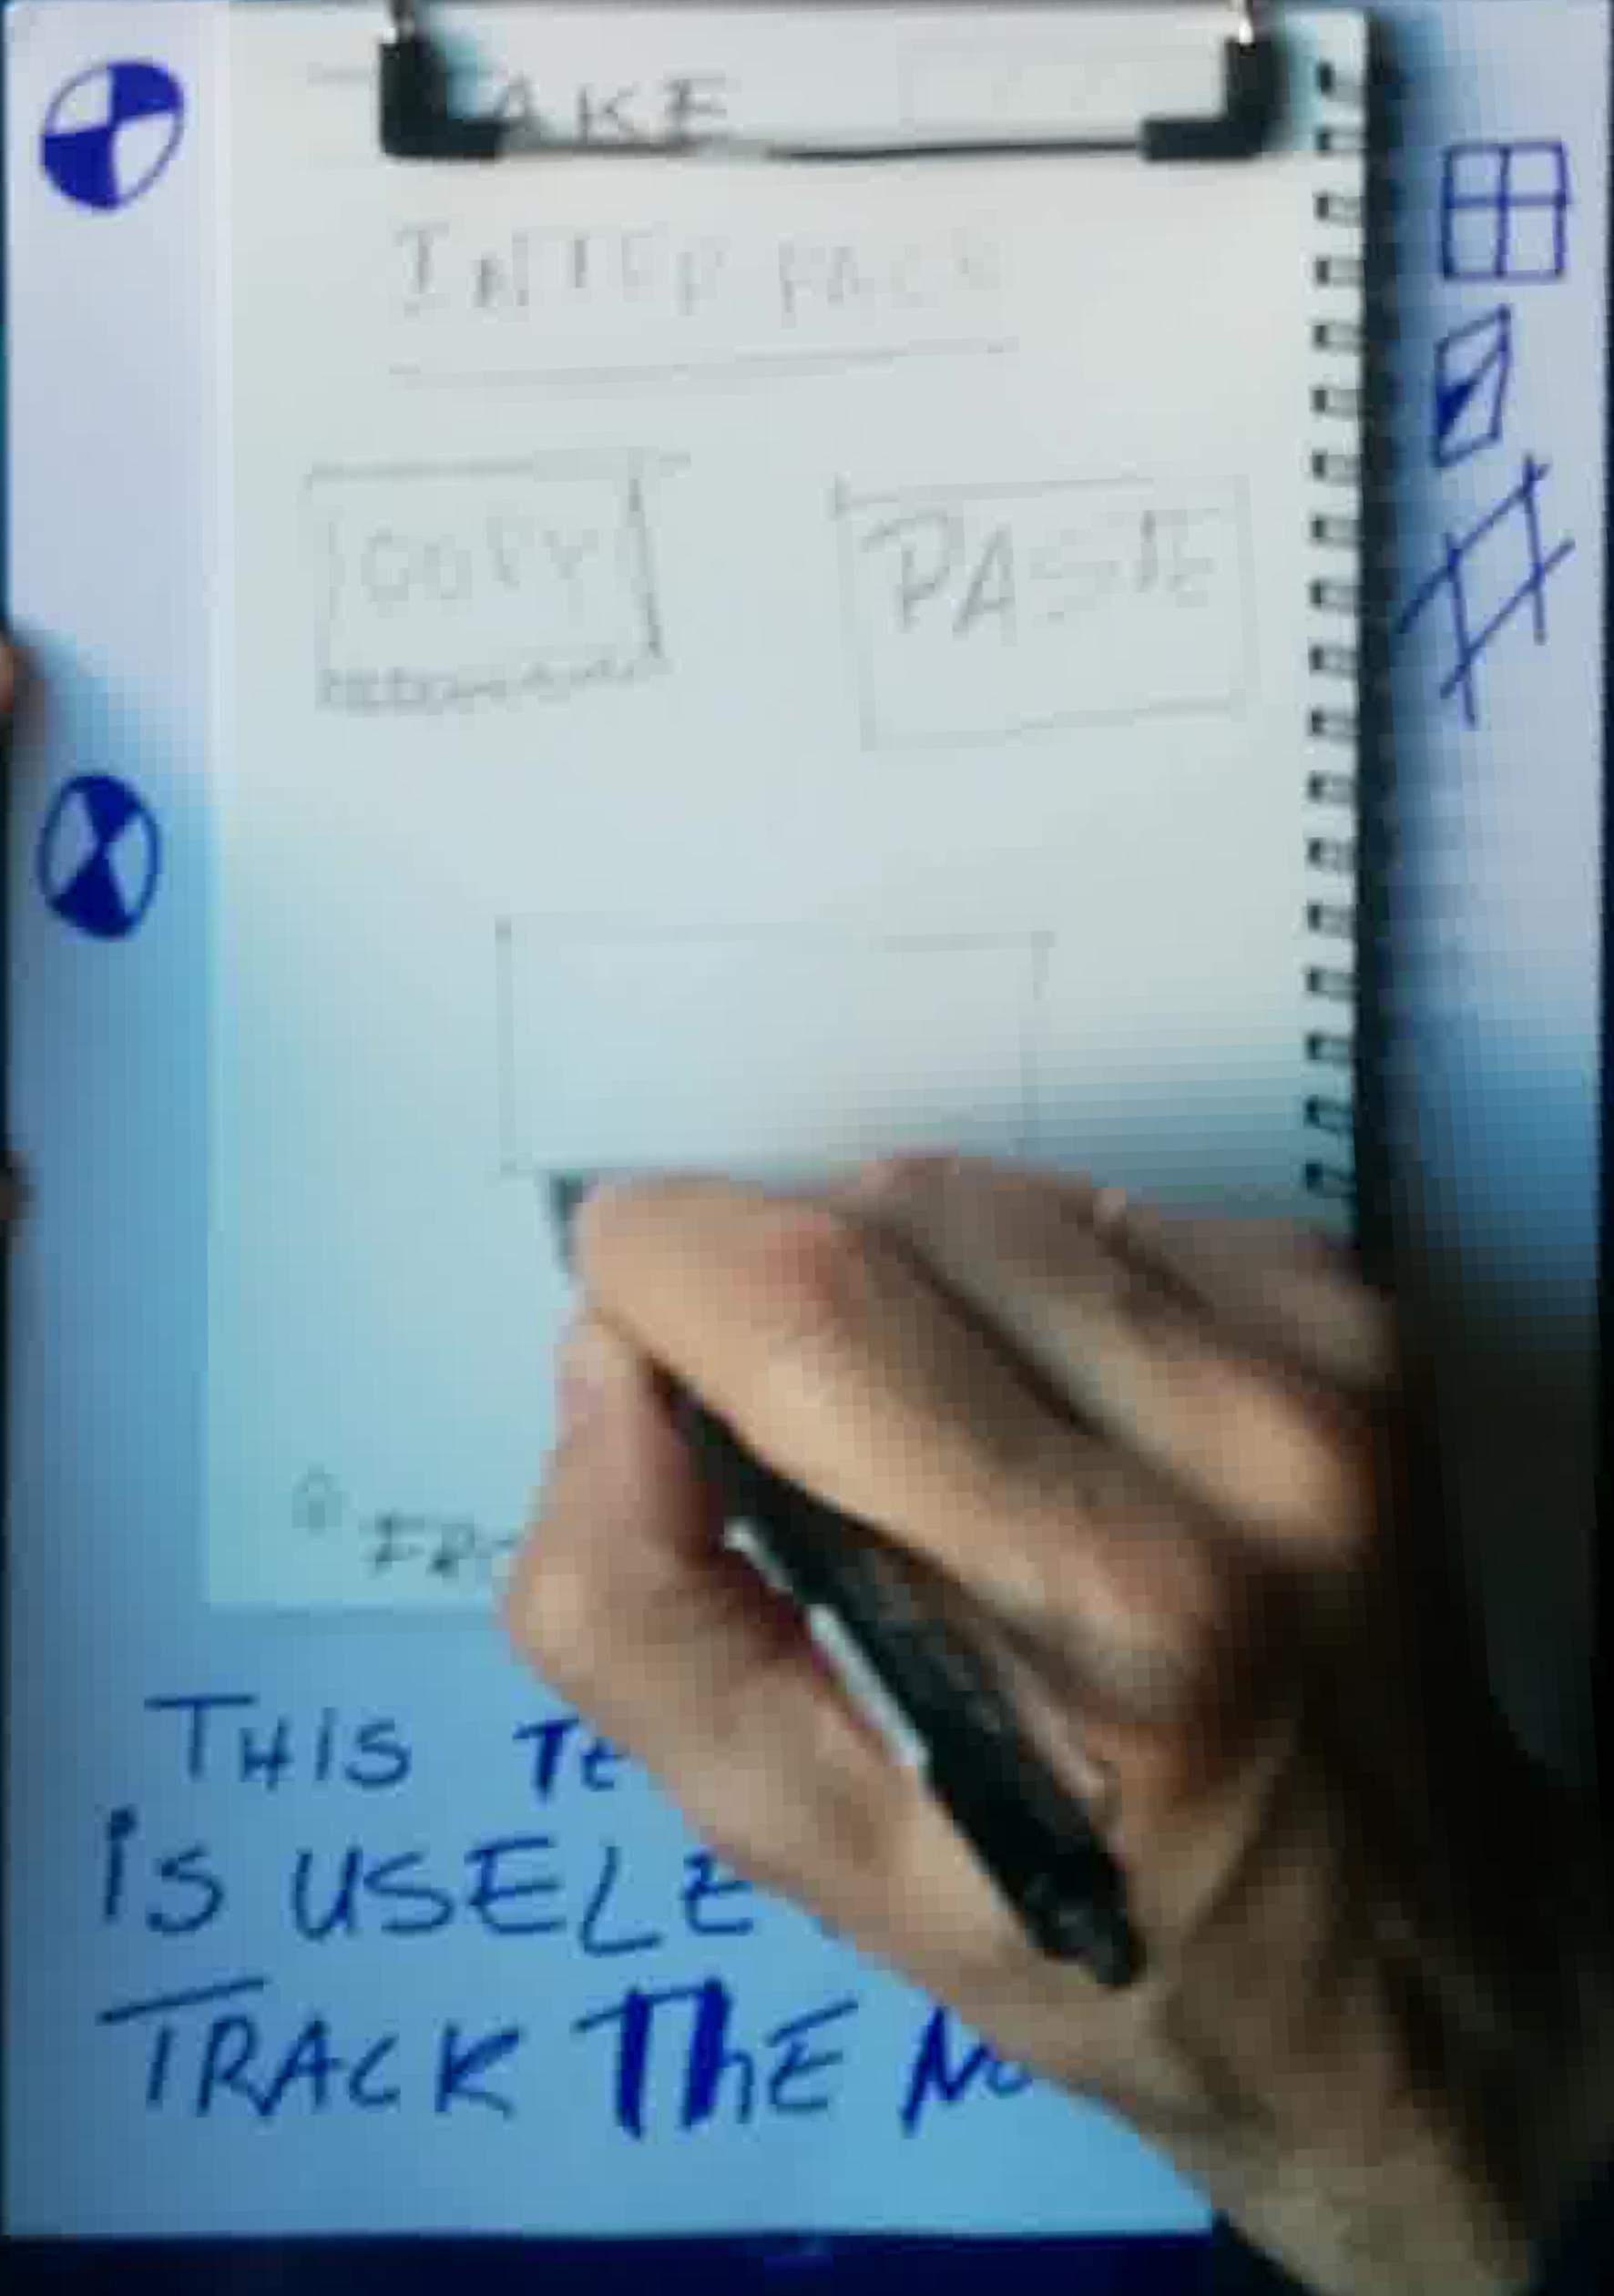 AKE
INTERFACE
COPY PASTE
THIS TE
is USELE
TRACK ThE No